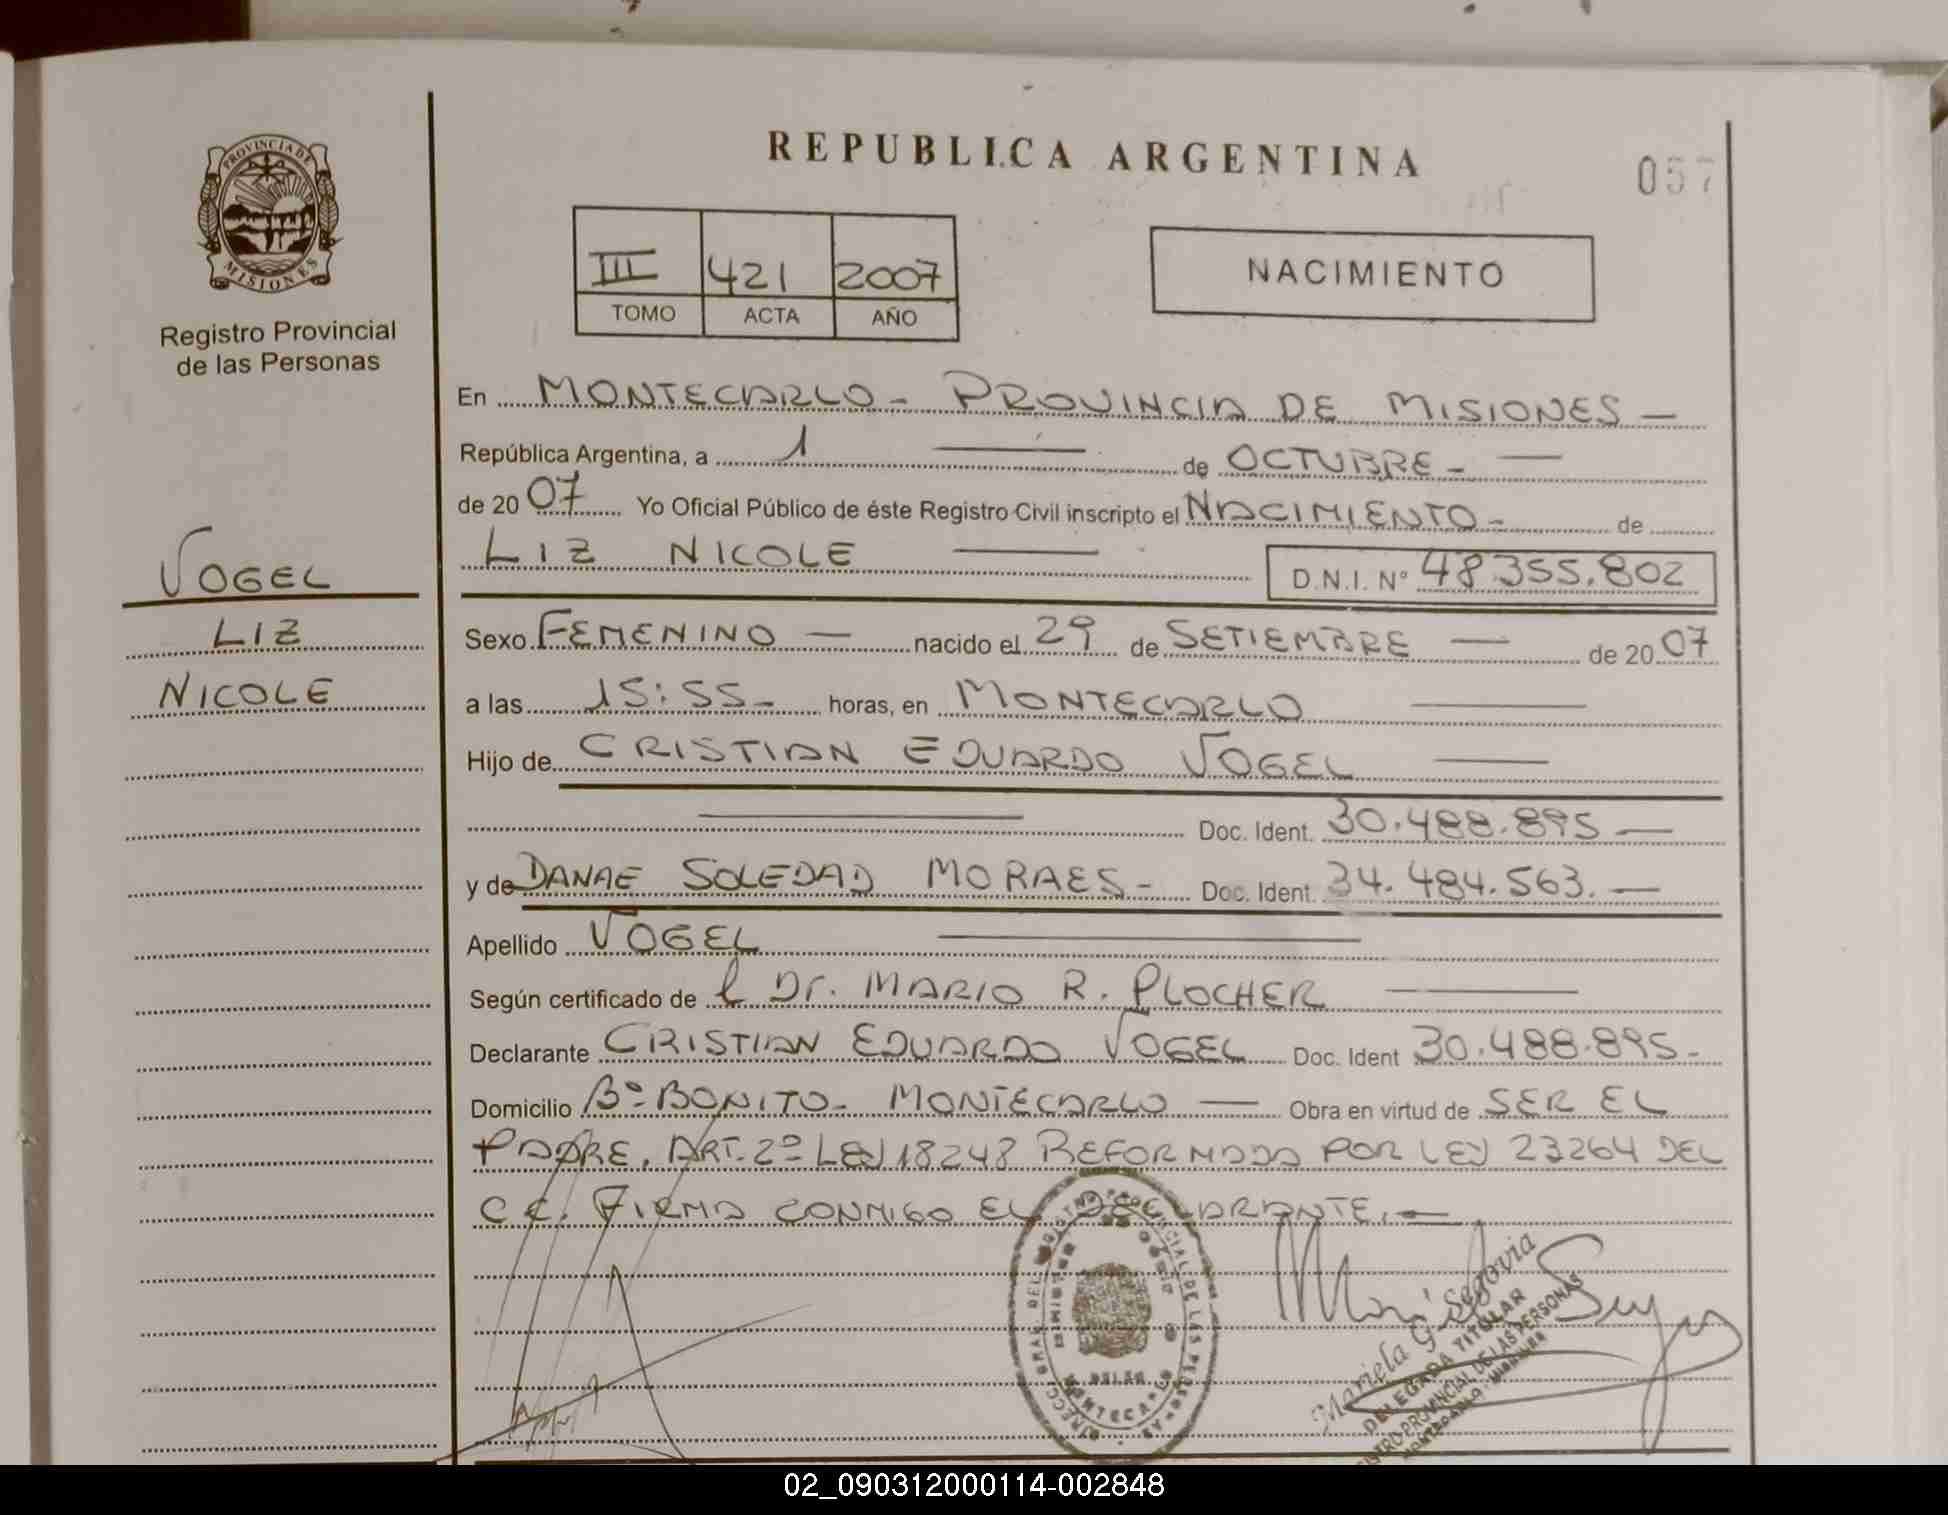 REPUBLICA ARGENTINA
057
PROVINCIA DE
MISIONES
Registro Provincial
de las Personas
III 421 2007
TOMO ACTA AÑO
NACIMIENTO
En MONTECARLO - PROVINCIA DE MISIONES -
República Argentina, a 1 de OCTUBRE -
de 20 07 Yo Oficial Público de éste Registro Civil inscripto el NACIMIENTO - de
LIZ NICOLE D.N.I. Nº 48.355.802
VOGEL
LIZ
NICOLE
Sexo FEMENINO - nacido el 29 de SETIEMBRE - de 20 07
a las 15:55 - horas, en MONTECARLO
Hijo de CRISTIAN EDUARDO VOGEL
Doc. Ident. 30.488.895 -
y de DANAE SOLEDAD MORAES - Doc. Ident. 34.484.563. -
Apellido VOGEL
Según certificado de l Dr. MARIO R. PLOCHER
Declarante CRISTIAN EDUARDO VOGEL Doc. Ident 30.488.895 -
Domicilio Bº BONITO - MONTECARLO - Obra en virtud de SER EL
PADRE. ART. 2º LEY 18248 REFORMADA POR LEY 23264 DEL
C C. FIRMA CONMIGO EL DECLARANTE. -
Mariela G. Segovia
DELEGADA TITULAR
PROVINCIAL DE LAS PERSONAS
02_090312000114-002848